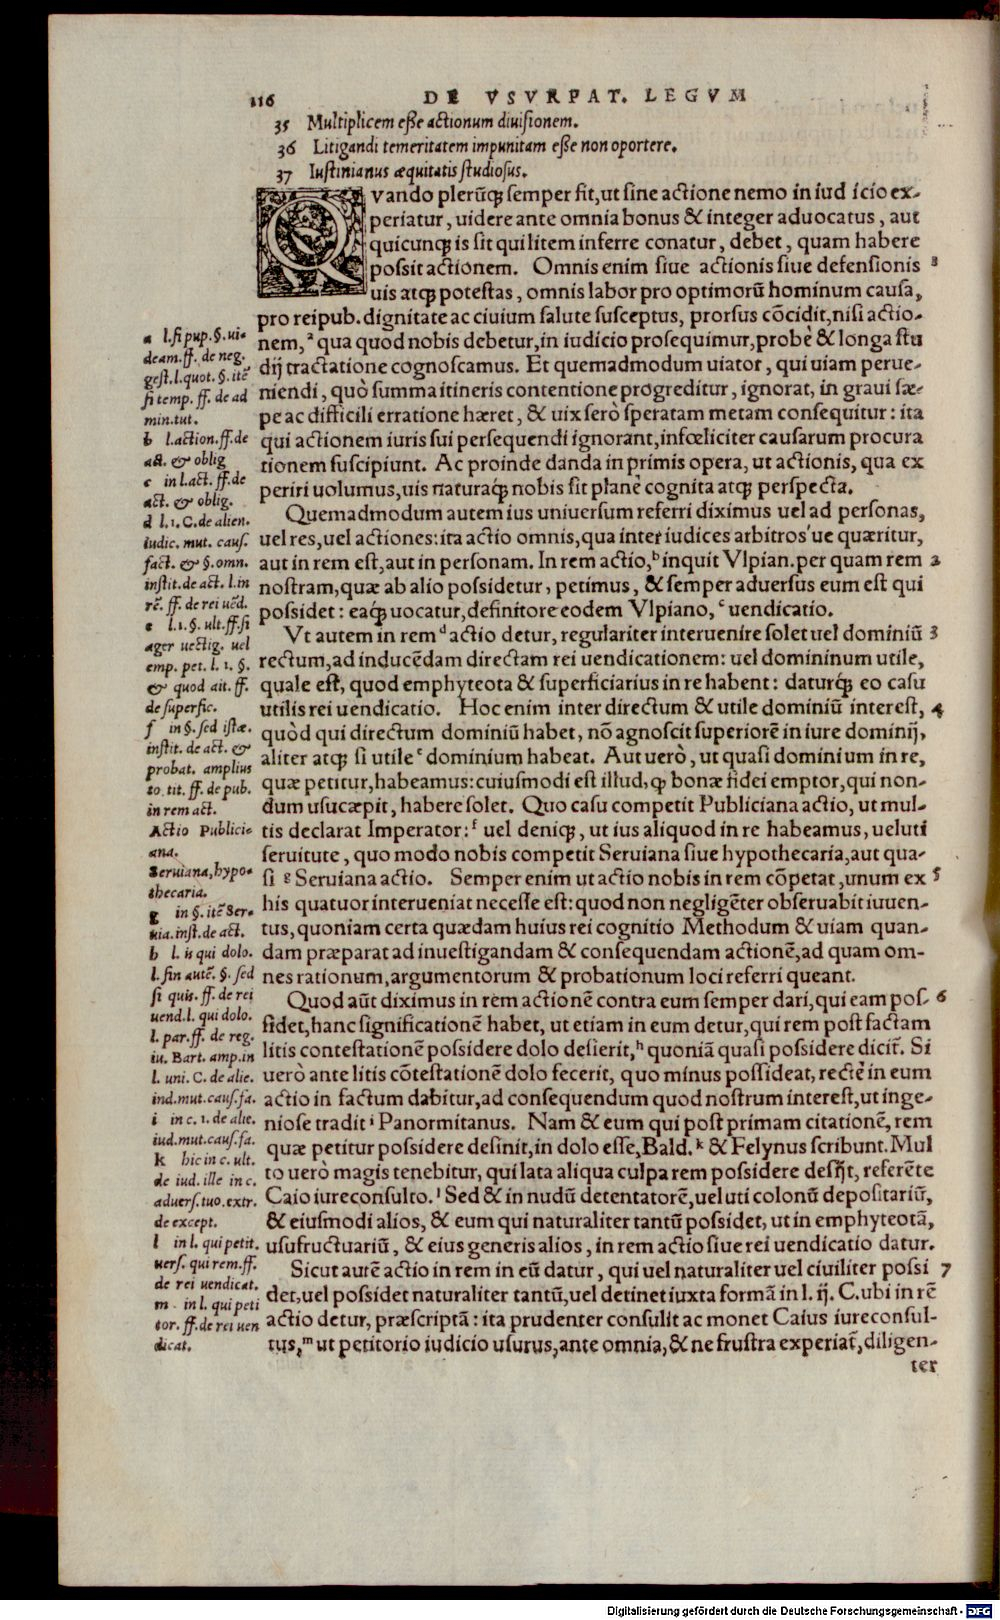 116 DE VSVRPAT. LEGVM
35 Multiplicem eſſe actionum diuiſionem.
36 Litigandi temeritatem impunitam eſſe non oportere.
37 Iuſtinianus æquitatis ſtudioſus.
QVando plerũq; ſemper fit, ut ſine actione nemo in iud icio ex-
periatur, uidere ante omnia bonus & integer aduocatus, aut
quicunq; is ſit qui litem inferre conatur, debet, quam habere
poſsit actionem. Omnis enim ſiue actionis ſiue defenſionis
uis atq; poteſtas, omnis labor pro optimorũ hominum cauſa,
pro reipub. dignitate ac ciuium ſalute ſuſceptus, prorſus cõcidit, niſi actio-
nem, a qua quod nobis debetur, in iudicio proſequimur, probè & longa ſtu
dij tractatione cognoſcamus. Et quemadmodum uiator, qui uiam perue-
niendi, quò ſumma itineris contentione progreditur, ignorat, in graui ſæ-
pe ac difficili erratione hæret, & uix ſerò ſperatam metam conſequitur: ita
qui actionem iuris ſui perſequendi ignorant, infœliciter cauſarum procura
tionem ſuſcipiunt. Ac proinde danda in primis opera, ut actionis, qua ex
periri uolumus, uis naturaq; nobis ſit planè cognita atq; perſpecta.
Quemadmodum autem ius uniuerſum referri diximus uel ad perſonas,
uel res, uel actiones: ita actio omnis, qua inter iudices arbitros'ue quæritur,
aut in rem eſt, aut in perſonam. In rem actio, b inquit Vlpian. per quam rem 2
noſtram, quæ ab alio poſsidetur, petimus, & ſemper aduerſus eum eſt qui
poſsidet: eaq; uocatur, definitore eodem Vlpiano, c uendicatio.
Vt autem in rem d actio detur, regulariter interuenire ſolet uel dominiũ 3
rectum, ad inducẽdam directam rei uendicationem: uel domininum utile,
quale eſt, quod emphyteota & ſuperficiarius in re habent: daturq́; eo caſu
utilis rei uendicatio. Hoc enim inter directum & utile dominiũ intereſt, 4
quòd qui directum dominiũ habet, nõ agnoſcit ſuperiorẽ in iure dominij,
aliter atq; ſi utile e dominium habeat. Aut uerò, ut quaſi dominium in re,
quæ petitur, habeamus: cuiuſmodi eſt illud, ꝙ bonæ fidei emptor, qui non-
dum uſucæpit, habere ſolet. Quo caſu competit Publiciana actio, ut mul-
tis declarat Imperator: f uel deniq;, ut ius aliquod in re habeamus, ueluti
ſeruitute, quo modo nobis competit Seruiana ſiue hypothecaria, aut qua-
ſi g Seruiana actio. Semper enim ut actio nobis in rem cõpetat, unum ex 5
his quatuor interueniat neceſſe eſt: quod non negligẽter obſeruabit iuuen-
tus, quoniam certa quædam huius rei cognitio Methodum & uiam quan-
dam præparat ad inueſtigandam & conſequendam actionẽ, ad quam om-
nes rationum, argumentorum & probationum loci referri queant.
Quod aũt diximus in rem actionẽ contra eum ſemper dari, qui eam poſ- 6
ſidet, hanc ſignificationẽ habet, ut etiam in eum detur, qui rem poſt factam
litis conteſtationẽ poſsidere dolo deſierit, h quoniã quaſi poſsidere dicit̃. Si
uerò ante litis cõteſtationẽ dolo fecerit, quo minus poſsideat, rectè in eum
actio in factum dabitur, ad conſequendum quod noſtrum intereſt, ut inge-
nioſe tradit i Panormitanus. Nam & eum qui poſt primam citationẽ, rem
quæ petitur poſsidere deſinit, in dolo eſſe, Bald. k & Felynus ſcribunt. Mul
to uerò magis tenebitur, qui lata aliqua culpa rem poſsidere deſijt, referẽte
Caio iureconſulto. l Sed & in nudũ detentatorẽ, ueluti colonũ depoſitariũ,
& eiuſmodi alios, & eum qui naturaliter tantũ poſsidet, ut in emphyteotã,
uſufructuariũ, & eius generis alios, in rem actio ſiue rei uendicatio datur.
Sicut autẽ actio in rem in eũ datur, qui uel naturaliter uel ciuiliter poſsi 7
det, uel poſsidet naturaliter tantũ, uel detinet iuxta formã in l. ij. C. ubi in rẽ
actio detur, præſcriptã: ita prudenter conſulit ac monet Caius iureconſul-
tus, m ut petitorio iudicio uſurus, ante omnia, & ne fruſtra experiat̃, diligen-
ter
a l. ſi pup. §. ui-
deam. ff. de neg.
geſt. l. quot. §. itẽ
ſi temp. ff. de ad
min. tut.
b l. action. ff. de
act. & oblig
c in l. act. ff. de
act. & oblig.
d l. 1. C. de alien.
iudic. mut. cauſ.
fact. & §. omn.
inſtit. de act. l. in
rẽ. ff. de rei uẽd.
e l. 1. §. ult. ff. ſi
ager uectig. uel
emp. pet. l. 1. §.
& quod ait. ff.
de ſuperfic.
f in §. ſed iſtæ.
inſtit. de act. &
probat. amplius
to. tit. ff. de pub.
in rem act.
Actio Publici-
ana.
Seruiana, hypo-
thecaria.
g in §. itẽ Ser-
uia. inſt. de act.
h l. is qui dolo.
l. ſin autẽ. §. ſed
ſi quis. ff. de rei
uend. l. qui dolo.
l. par. ff. de reg.
iu. Bart. amp. in
l. uni. C. de alie.
ind. mut. cauſ. fa.
i in c. 1. de alie.
iud. mut. cauſ. fa.
k hic in c. ult.
de iud. ille in c.
aduerſ. tuo. extr.
de except.
l in l. qui petit.
uerſ. qui rem. ff.
de rei uendicat.
m in l. qui peti
tor. ff. de rei uen
dicat.
Digitalisierung gefördert durch die Deutsche Forschungsgemeinschaft - DFG